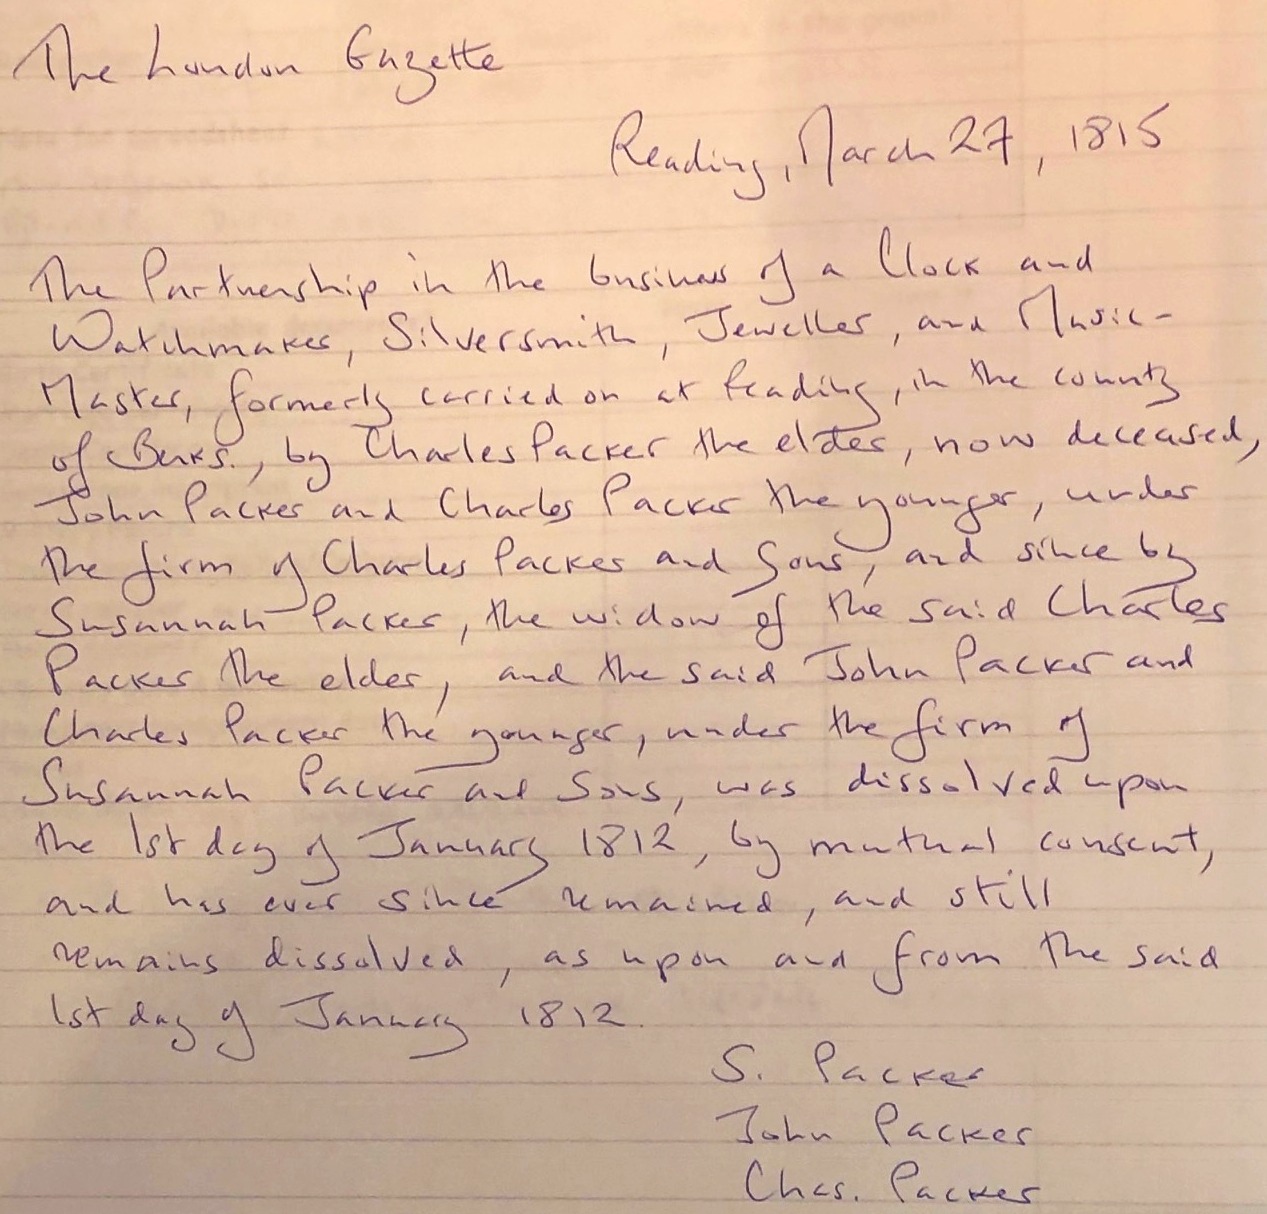 The London Gazette
Reading, March 27, 1815
The Partnership in the business of a Clock and
Watchmaker, Silversmith, Jeweller, and Music-
Master, formerly carried on at Reading, in the county
of Berks., by Charles Packer the elder, now deceased,
John Packer and Charles Packer the younger, under
the firm of Charles Packer and Sons, and since by
Susannah Packer, the widow of the said Charles
Packer the elder, and the said John Packer and
Charles Packer the younger, under the firm of
Susannah Packer and Sons, was dissolved upon
the 1st day of January 1812, by mutual consent,
and has ever since remained, and still
remains dissolved, as upon and from the said
1st day of January 1812.
S. Packer
John Packer
Chas. Packer